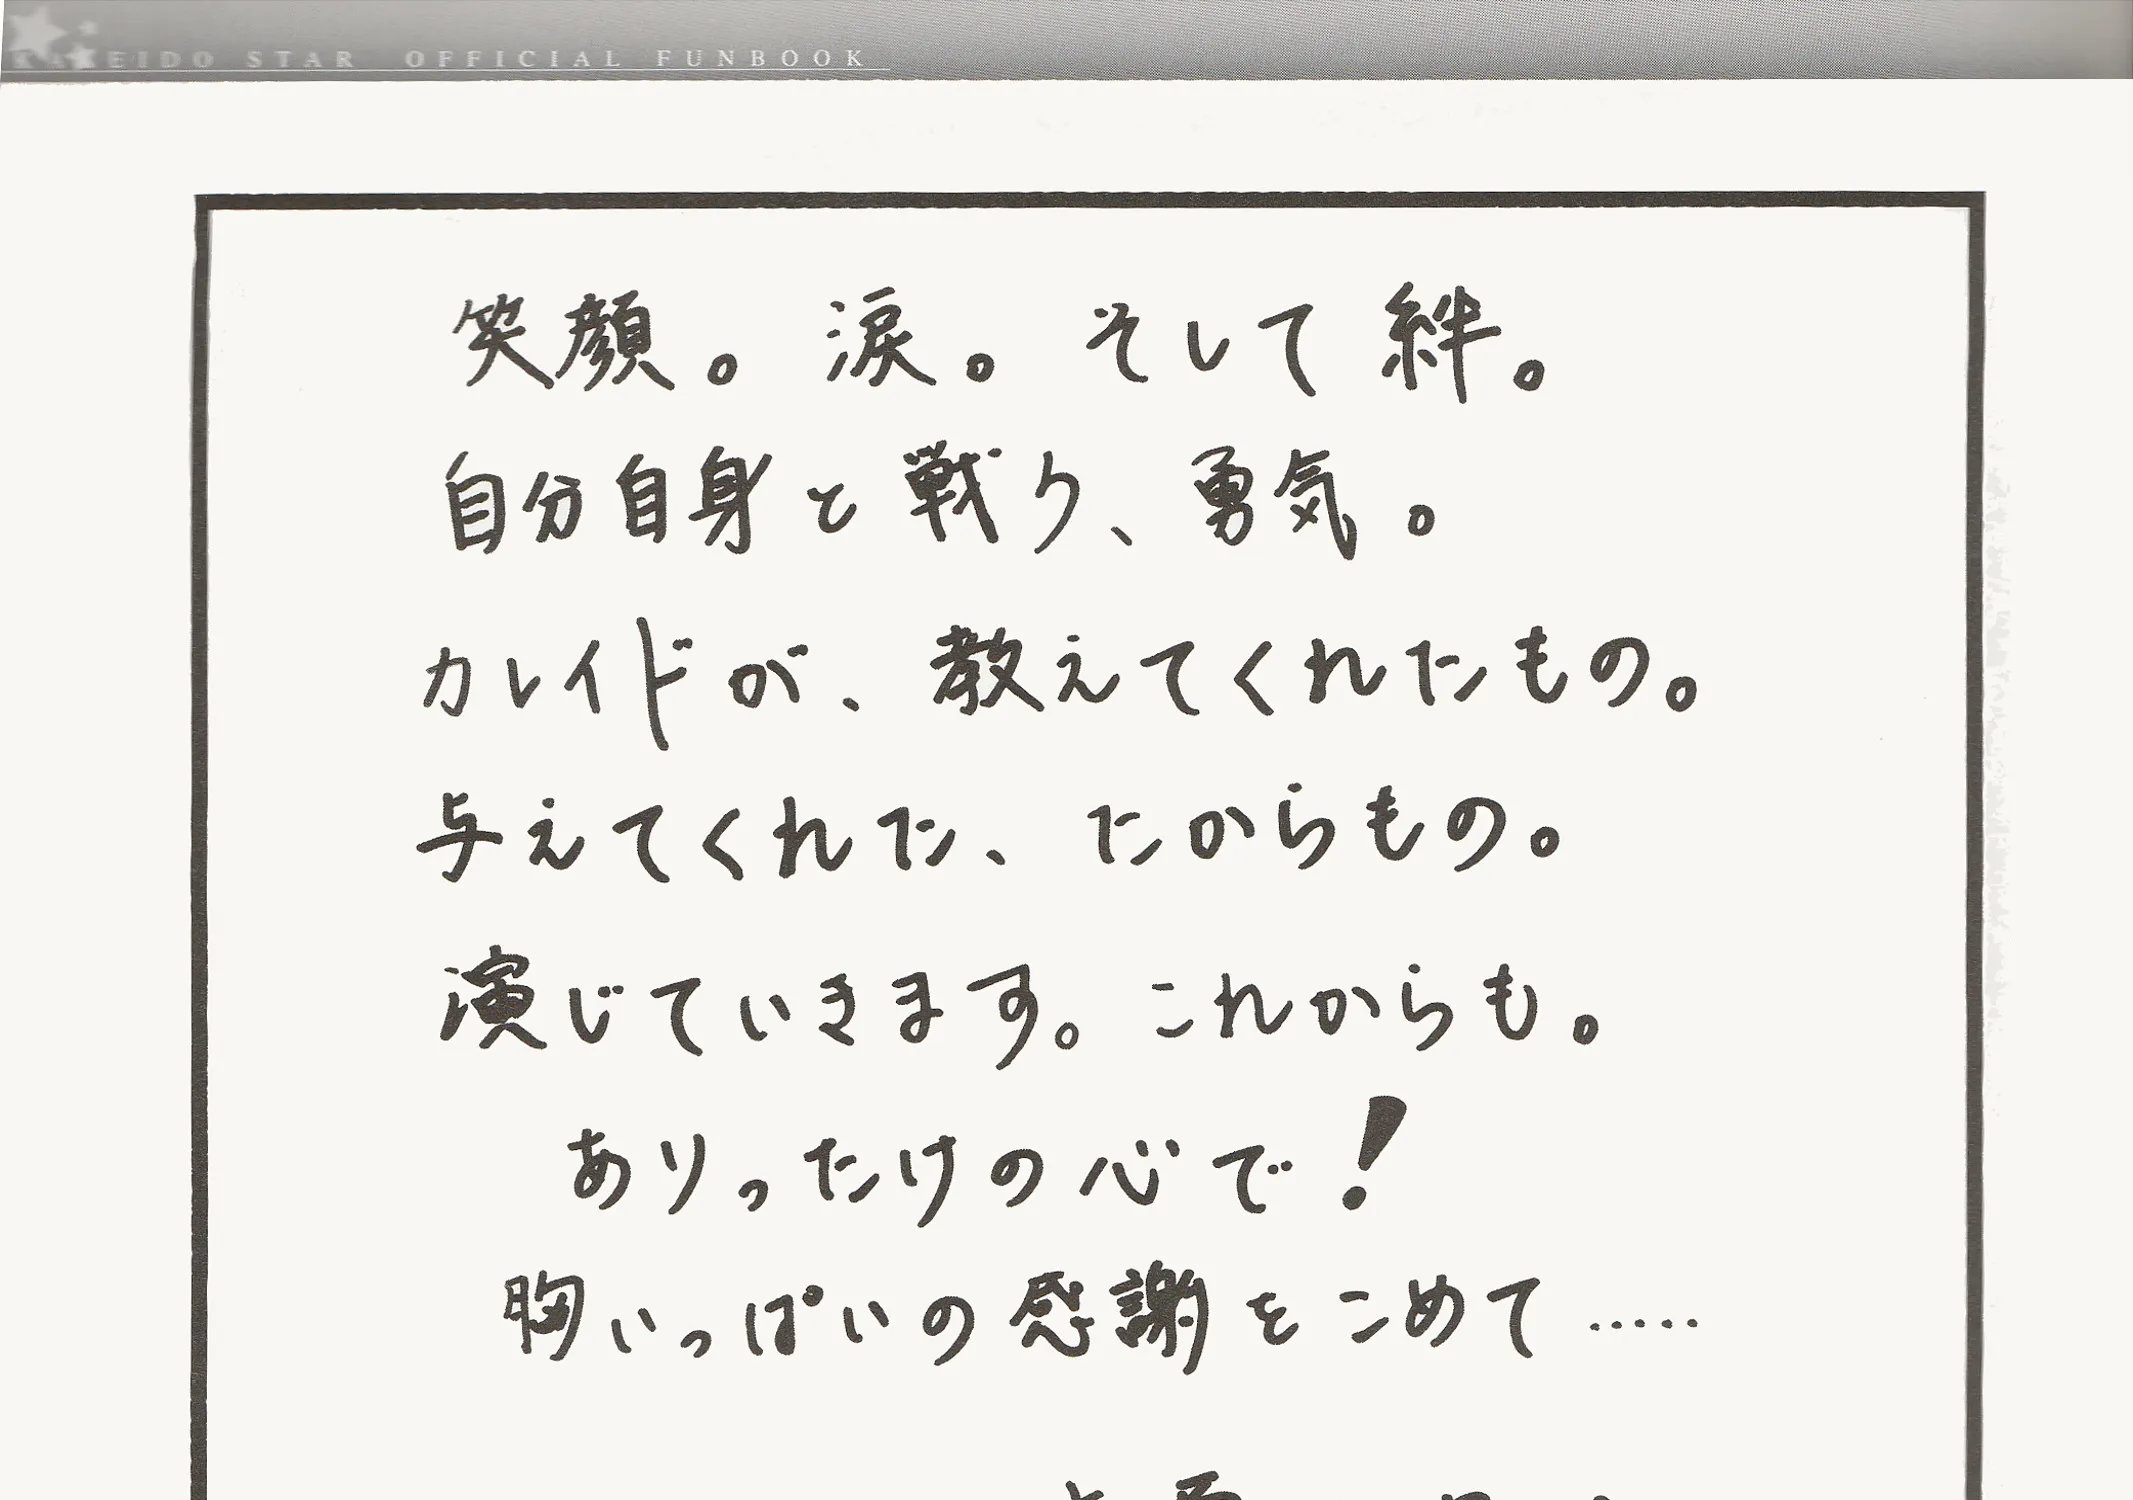 KALEIDO STAR OFFICIAL FUNBOOK
笑顔。涙。そして絆。
自分自身と戦う、勇気。
カレイドが、教えてくれたもの。
与えてくれた、たからもの。
演じていきます。これからも。
ありったけの心で!
胸いっぱいの感謝をこめて.....